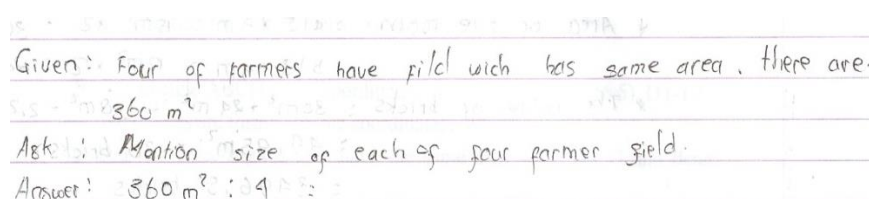 Given : Four of farmers have fild wich has same area. there are.
360 m²
Ask : Mantion size of each of four farmer field.
Answer : 360 m² : 4 =